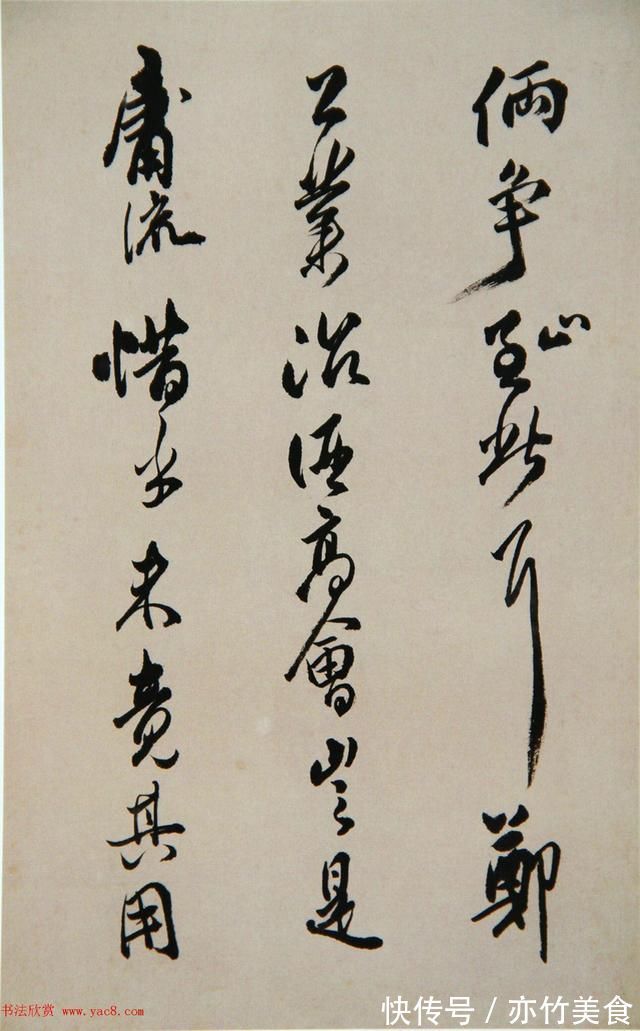 倆争至此耳鄭
公業治酒高會豈是
庸流惜乎未竟其用
书法欣赏 www.yac8.com
快传号/亦竹美食